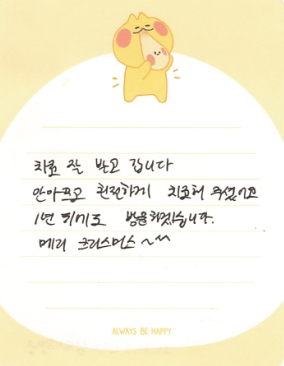 치료 잘 받고 갑니다
안아프고 완전하게 치료해 주셨어요
1년 뒤에도 방문하겠습니다.
메리 크리스마스~~
ALWAYS BE HAPPY